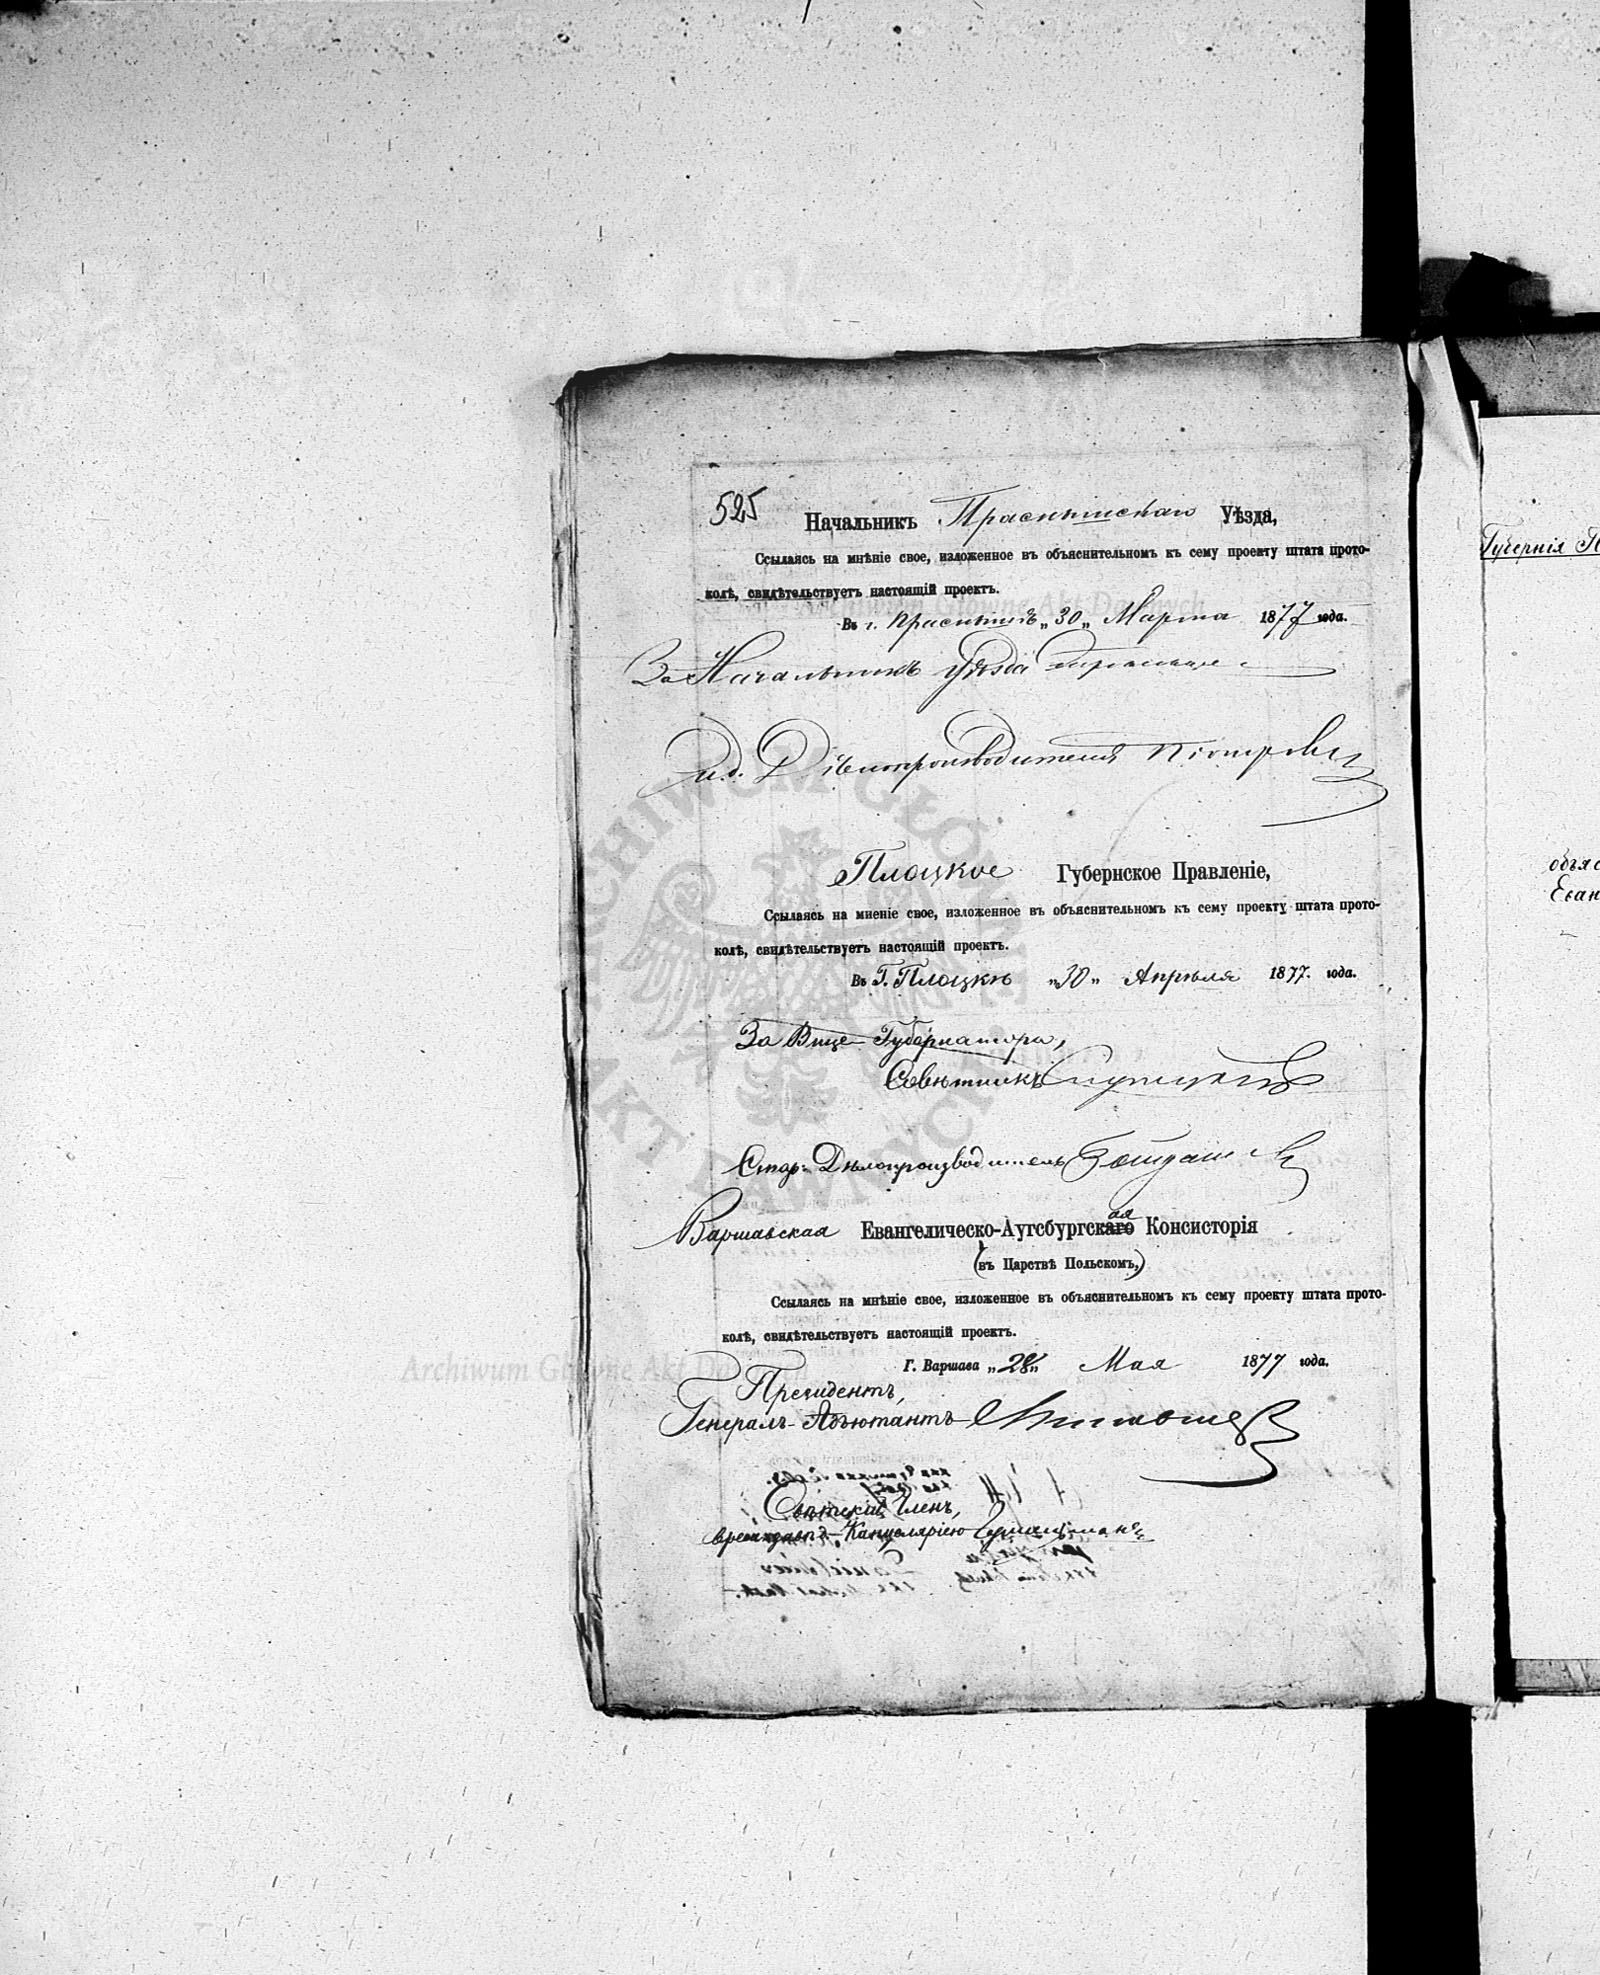 525
Начальникъ Праснышскаго Уѣзда,
Ссылаясь на мнѣніе свое, изложенное въ объяснительномъ къ сему проекту штата прото-
колѣ, свидѣтельствуетъ настоящій проектъ.
Въ г. Праснышѣ „30„ Марта 1877 года.
За Начальникъ Уѣзда
и.д. Дѣлопроизводителя
Плоцкое Губернское Правленіе,
Ссылаясь на миеніе свое, изложенное въ объяснительномъ къ сему проекту штата прото-
колѣ, свидѣтельствуетъ настоящій проектъ.
Въ Г. Плоцкѣ „30„ Апрѣля 1877. года.
За Вице-Губернатора,
Совѣтникъ
Стар: Дѣлопроизводитель
Варшавская Евангелическо-Аугсбургскаго ая Консисторія
(въ Царствѣ Польскомъ,)
Ссылаясь на мнѣніе свое, изложенное въ объяснительномъ къ сему проекту штата прото-
колѣ, свидѣтельствуетъ настоящій проектъ.
Г. Варшава „28„ Мая 1877 года.
Президентъ,
Генералъ-Адъютантъ
Свѣтскій Членъ,
Канцеляріею
Губернія
объяс
Еван
Archiwum Główne Akt Dawnych
ARCHIWUM GŁÓWNE AKT DAWNYCH
Archiwum Główne Akt Dawnych